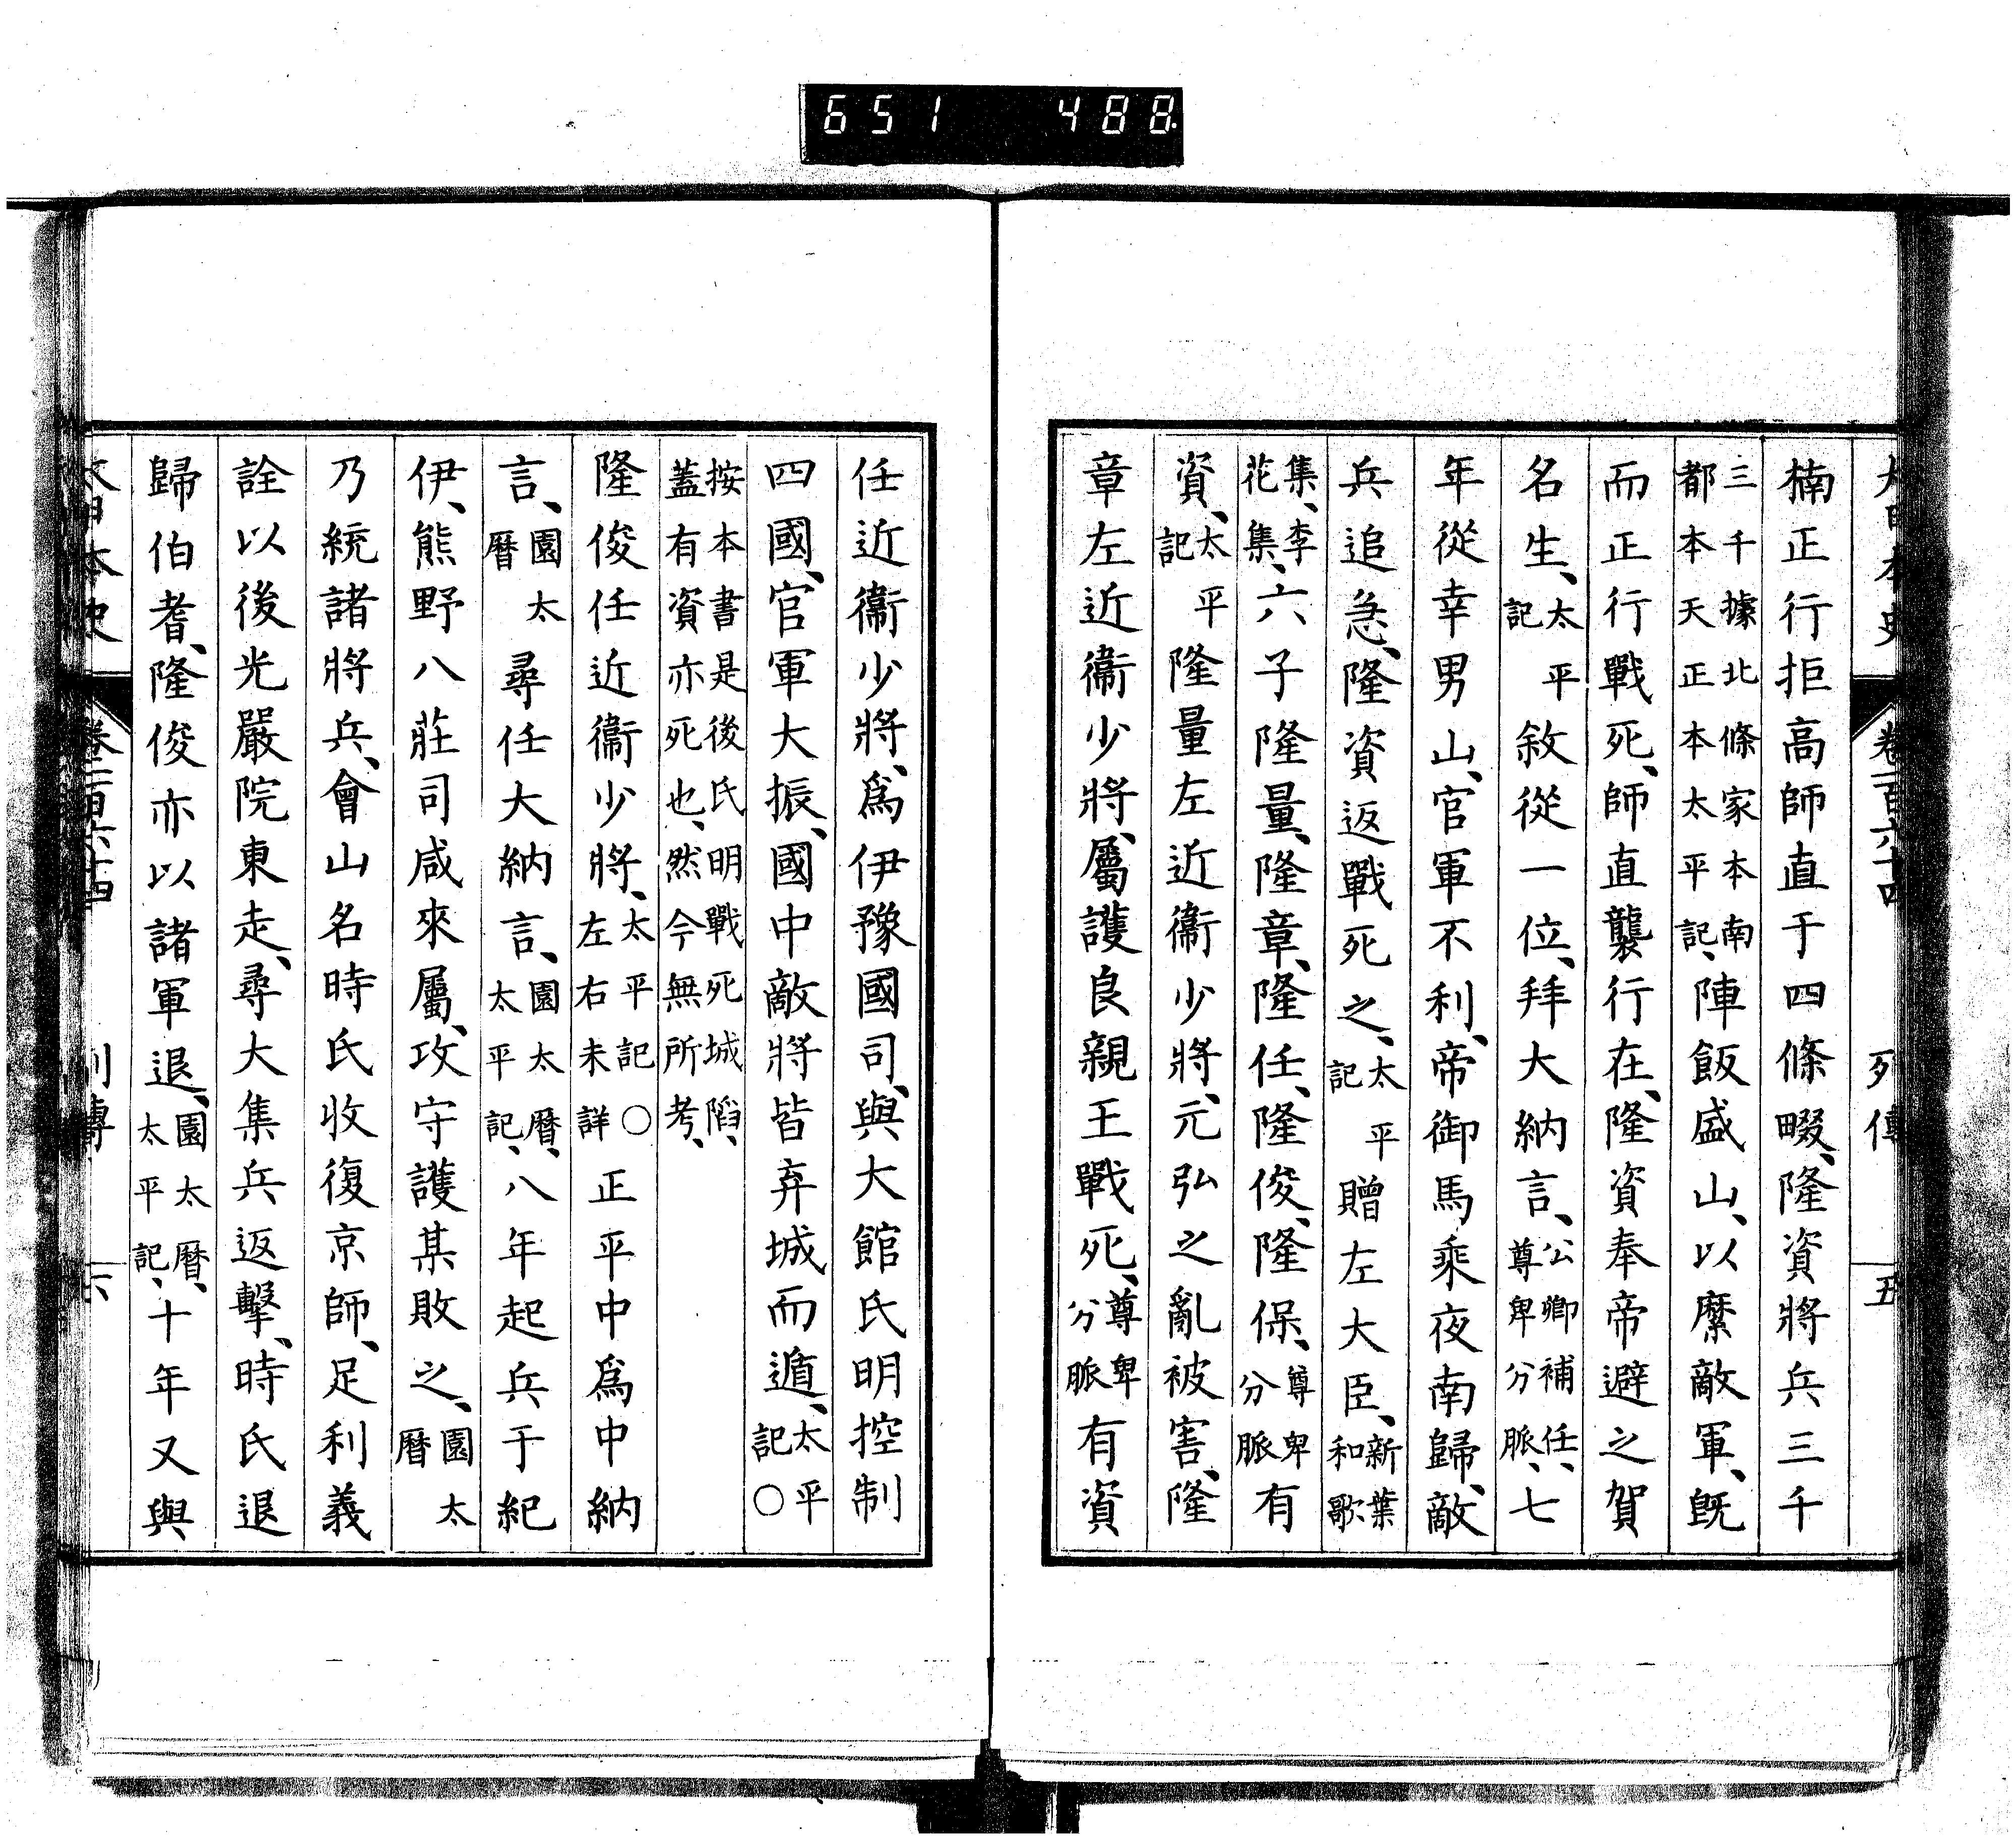 651 488
大日本史 卷一百六十四 列傳 五
楠正行拒高師直于四條畷、隆資將兵三千
三千據北條家本南都本天正本太平記、陣飯盛山、以縻敵軍、既
而正行戰死、師直襲行在、隆資奉帝避之賀
名生、太平記敘從一位、拜大納言、公卿補任、尊卑分脈、七
年從幸男山、官軍不利、帝御馬乘夜南歸、敵
兵追急、隆資返戰死之、太平記贈左大臣、新葉和歌
集、李花集、六子隆量、隆章、隆任、隆俊、隆保、尊卑分脈有
資、太平記隆量左近衞少將、元弘之亂被害、隆
章左近衞少將、屬護良親王戰死、尊卑分脈有資
任近衞少將、爲伊豫國司、與大館氏明控制
四國、官軍大振、國中敵將皆弃城而遁、太平記○
按本書是後氏明戰死城陷、蓋有資亦死也、然今無所考、
隆俊任近衞少將、太平記○左右未詳正平中爲中納
言、園太曆尋任大納言、園太曆、太平記、八年起兵于紀
伊、熊野八莊司咸來屬、攻守護某敗之、園太曆
乃統諸將兵、會山名時氏收復京師、足利義
詮以後光嚴院東走、尋大集兵返擊、時氏退
歸伯耆、隆俊亦以諸軍退、園太曆、太平記、十年又與
大日本史 卷一百六十四 列傳 六